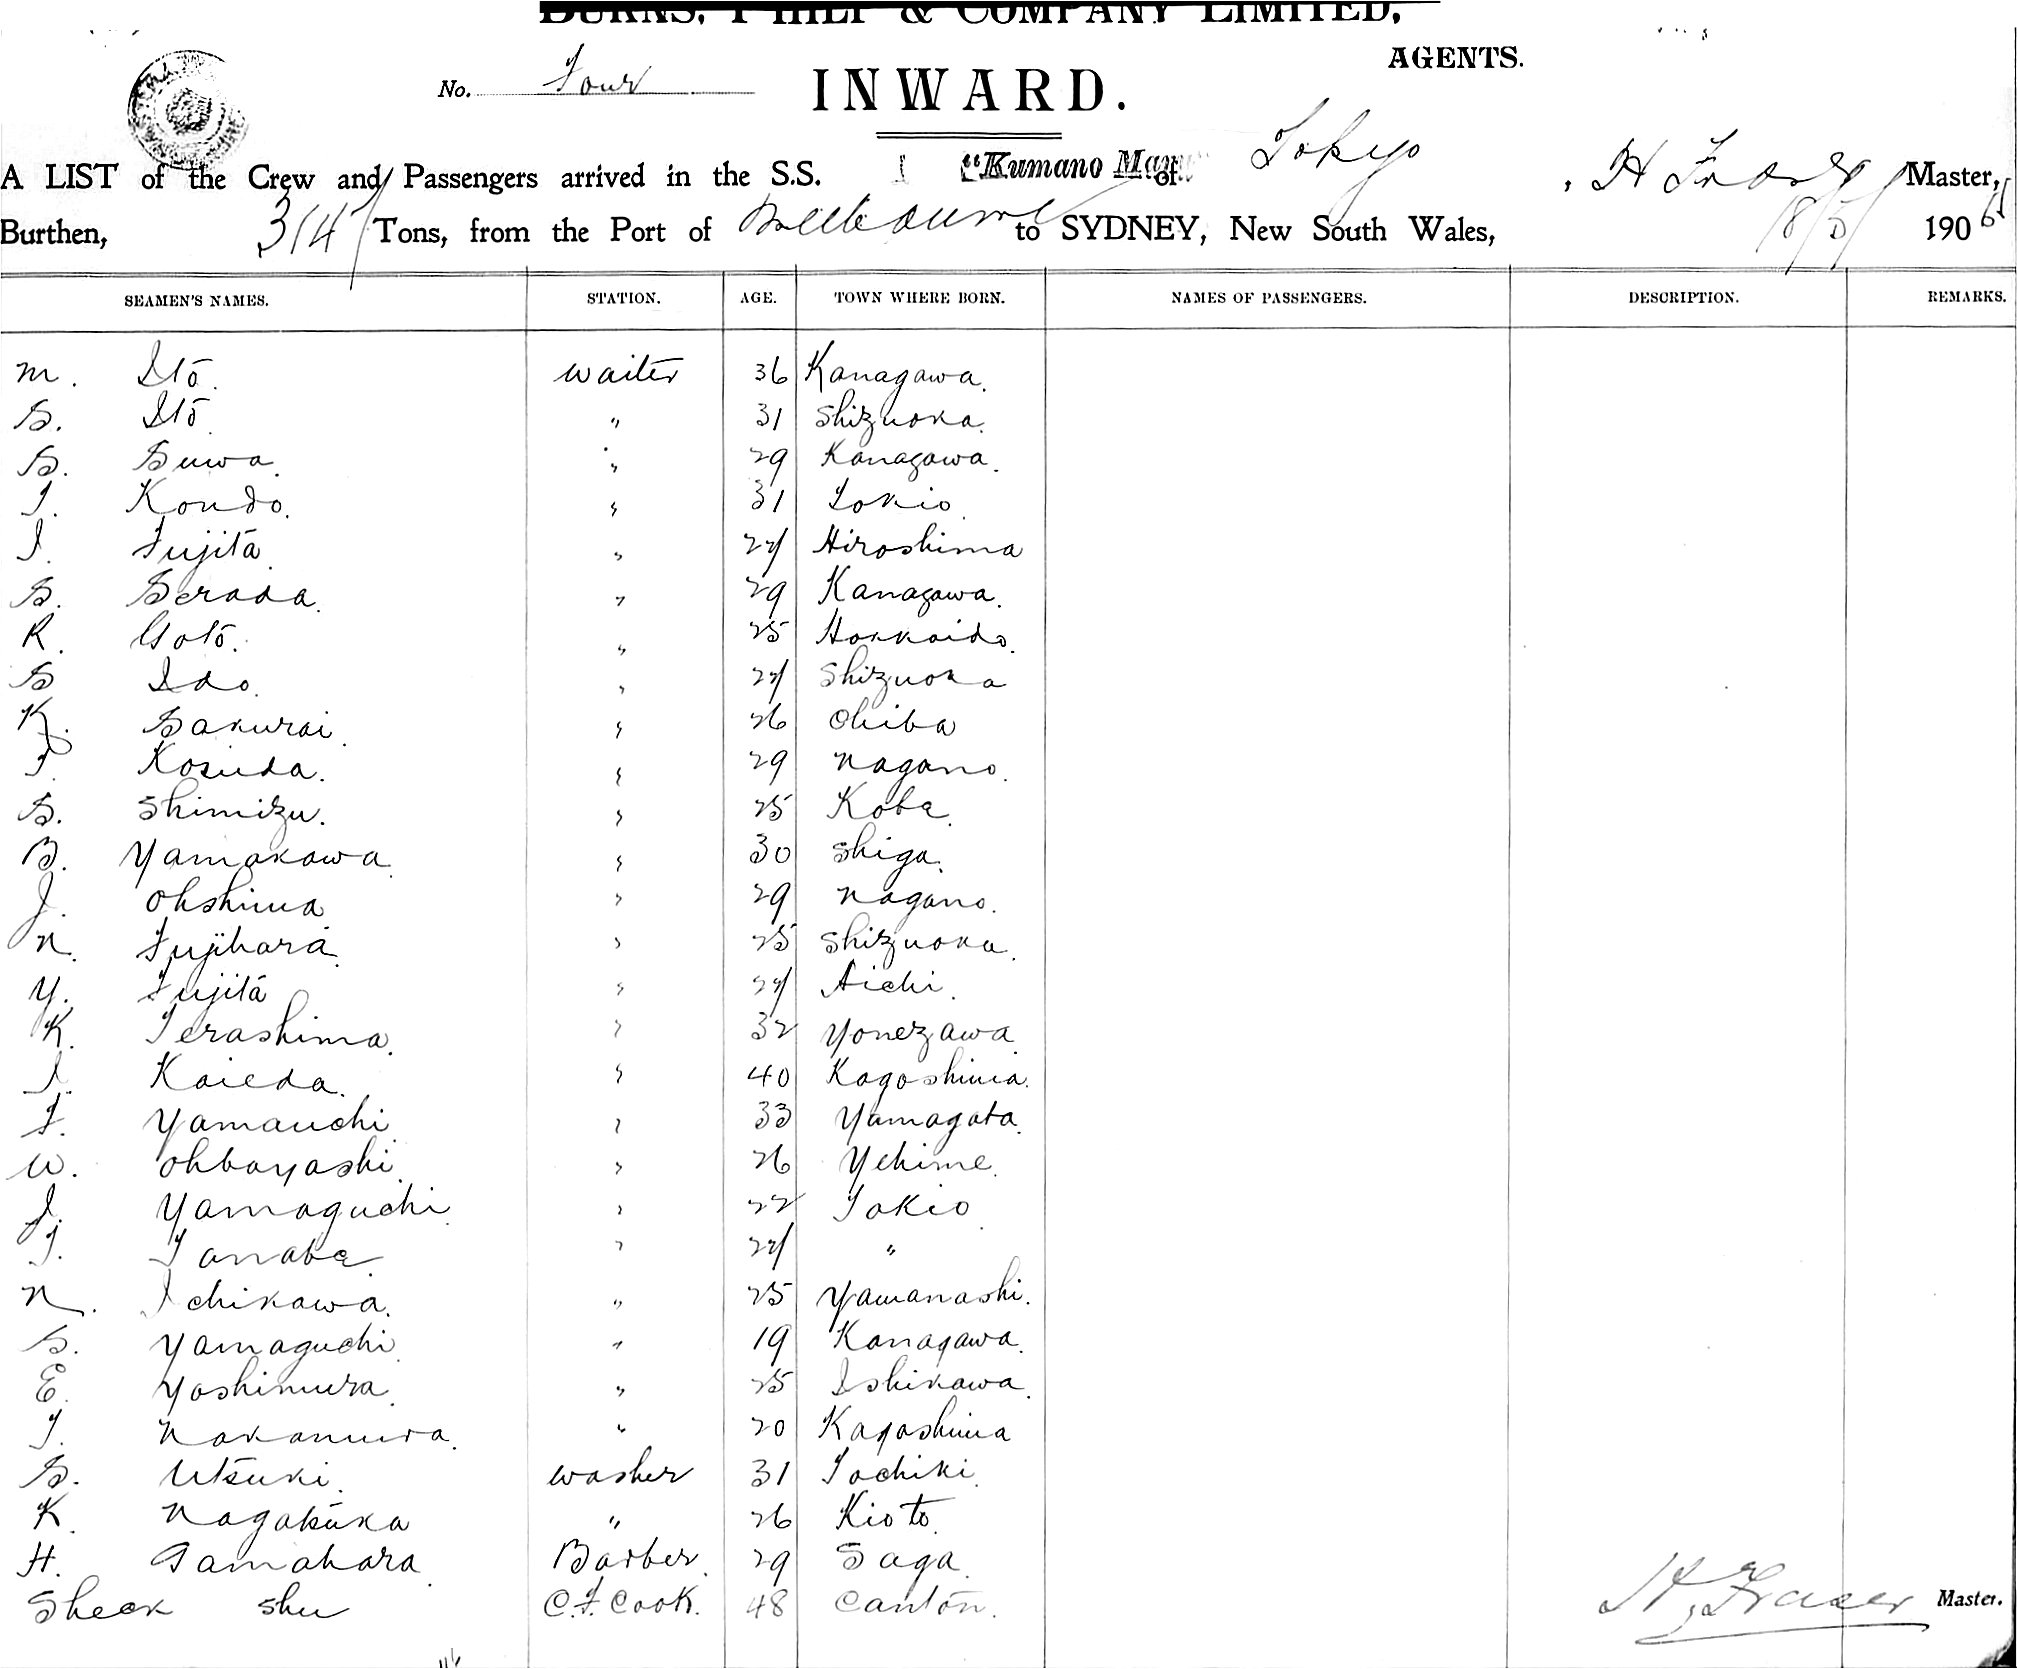 BURNS, PHILP & COMPANY LIMITED,
AGENTS.
No. Four
INWARD.
A LIST of the Crew and Passengers arrived in the S.S. "Kumano Maru" of Tokyo, H Fraser Master,
Burthen, 3147 Tons, from the Port of Melbourne to SYDNEY, New South Wales, 18/5/ 1906
SEAMEN'S NAMES. STATION. AGE. TOWN WHERE BORN. NAMES OF PASSENGERS. DESCRIPTION. REMARKS.
M. Itō. waiter 36 Kanagawa.
S. Itō " 31 Shizuoka.
S. Suwa. " 29 Kanagawa.
T. Kondo. " 31 Tokio.
I. Fujita " 27 Hiroshima
S. Serada. " 29 Kanagawa.
R. Goto. " 25 Hokkaido.
S Ido. " 27 Shizuoka
K. Sakurai. " 26 Chiba
T. Kosuda. " 29 Nagano.
S. Shimizu. " 25 Kobe.
B. Yamakawa. " 30 Shiga.
J. Ohshima " 29 Nagano.
N. Fujihara. " 25 Shizuoka.
Y. Fujita " 27 Aichi.
K. Terashima. " 32 Yonezawa.
I. Kaieda. " 40 Kagoshima.
F. Yamauchi " 33 Yamagata.
W. Ohbayashi. " 26 Yehime.
I. Yamaguchi. " 22 Tokio.
T. Tanabe. " 27 "
N. Ichikawa. " 25 Yamanashi.
S. Yamaguchi. " 19 Kanagawa.
E. Yoshimura. " 25 Ishikawa.
T. Nakamura. " 20 Kagoshima
S. Utsuki. washer 31 Tochiki.
K. Nagatsuka " 26 Kioto.
H. Tamahara. Barber. 29 Saga.
Sheck Shu C.F. Cook. 48 Canton.
H. Fraser Master.